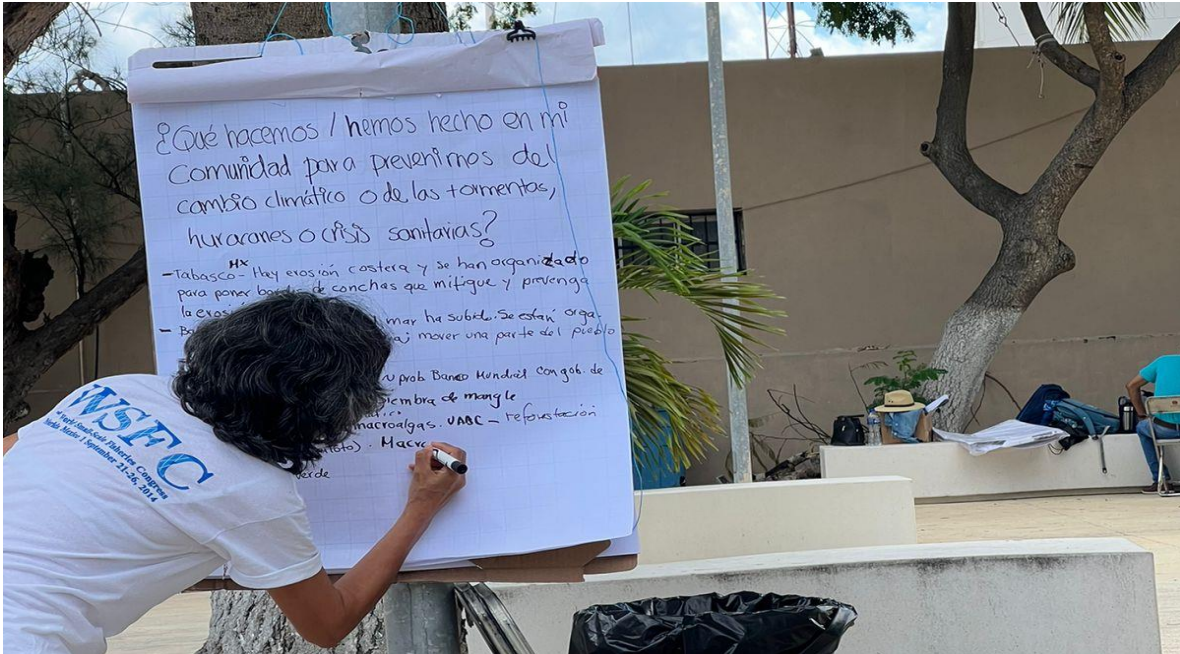 ¿Qué hacemos / hemos hecho en mi
Comunidad para prevenirnos del
cambio climático o de las tormentas,
huracanes o crisis sanitarias?
MX
- Tabasco - Hay erosión costera y se han organizado
para poner de conchas que mitigue y prevenga
la
mar ha subido. Se están orga-
mover una parte del pueblo
prob. Banco Mundial con gob. de
siembra de mangle
macroalgas. UABC - reforestación
. Macro
verde
WSFC
World Small-Scale Fisheries Congress
Merida Mexico / September 21-26, 2014